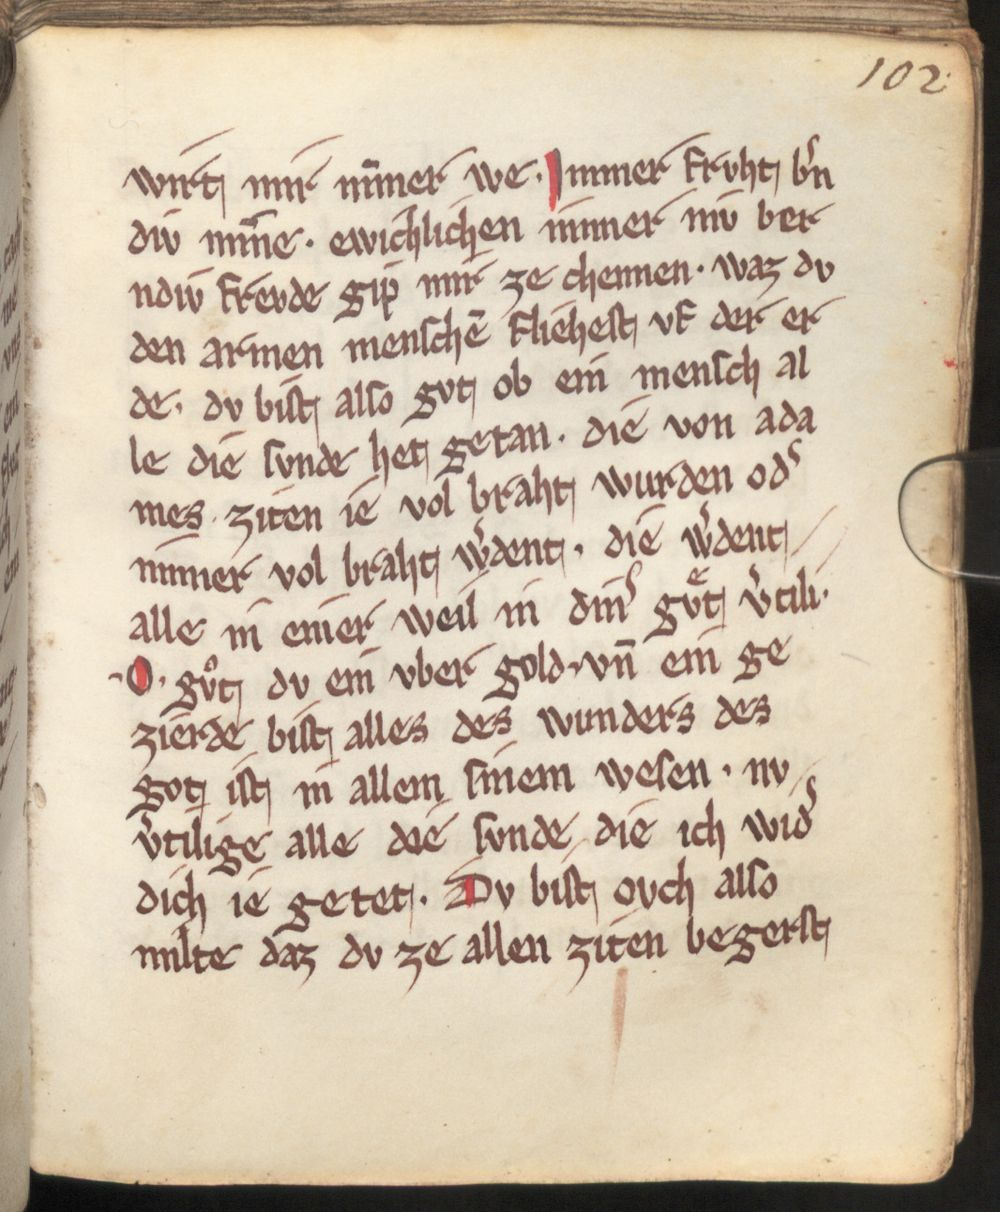 102
wirt mir nim̄er we · Immer frvht b̾n
div minn̄e · ewichlichen immer niv ber
ndiv frevde gip mir ze chennen · waz dv
den armen menschē fliehest vf der er
de · dv bist also gvt ob ein mensch al
le die svnde het getan · die von ada
mes ziten ie vol braht wurden od̾
nimer vol braht w̾dent · die w̾dent
alle in einer weil in din̾ gvͤt v̾tili·
O · gvͦt dv ein vber gold · vn̄ ein ge
zierde bist alles des wunders des
got ist in allem sinem wesen · nv
v̾tilige alle die svnde die ich wid̾
dich ie getet · Dv bist ovch also
milte daz dv ze allen ziten begerst